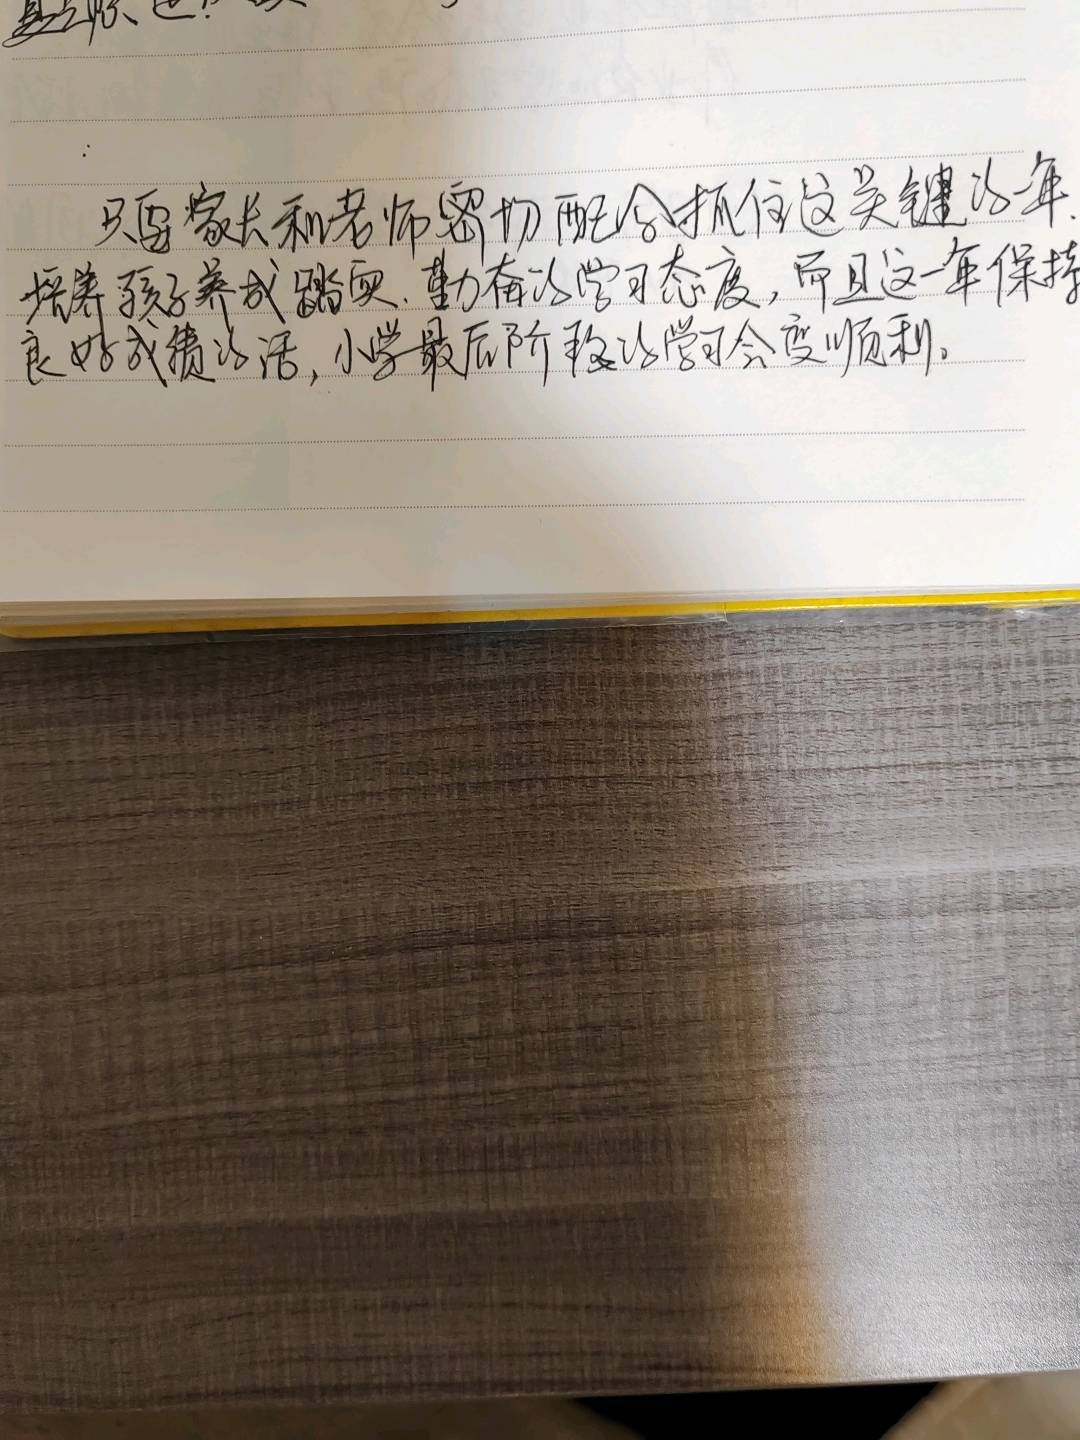 只要家长和老师密切配合抓住这关键的一年、
培养孩子养成踏实、勤奋的学习态度，而且这一年保持
良好成绩的话，小学最后阶段的学习会变顺利。